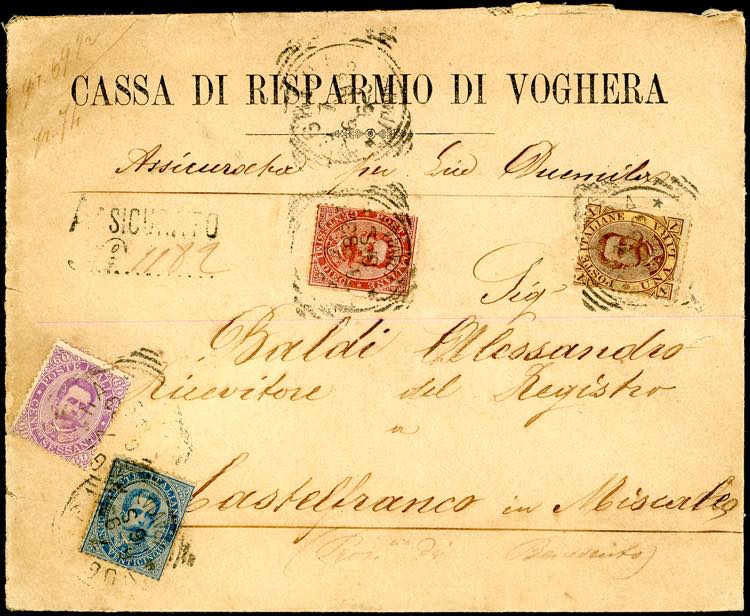 gr. 69
gr. 74
CASSA DI RISPARMIO DI VOGHERA
Assicurata per Lire Duemila
ASSICURATO
N. 1182
POSTE ITALIANE
CENT. DIECI
POSTE ITALIANE
UNA LIRA
Sig
Baldi Alessandro
Ricevitore del Registro
a
Castelfranco in Miscano
(Prov. di Benevento)
60 POSTE ITALIANE 60
CENT. SESSANTA
POSTE ITALIANE